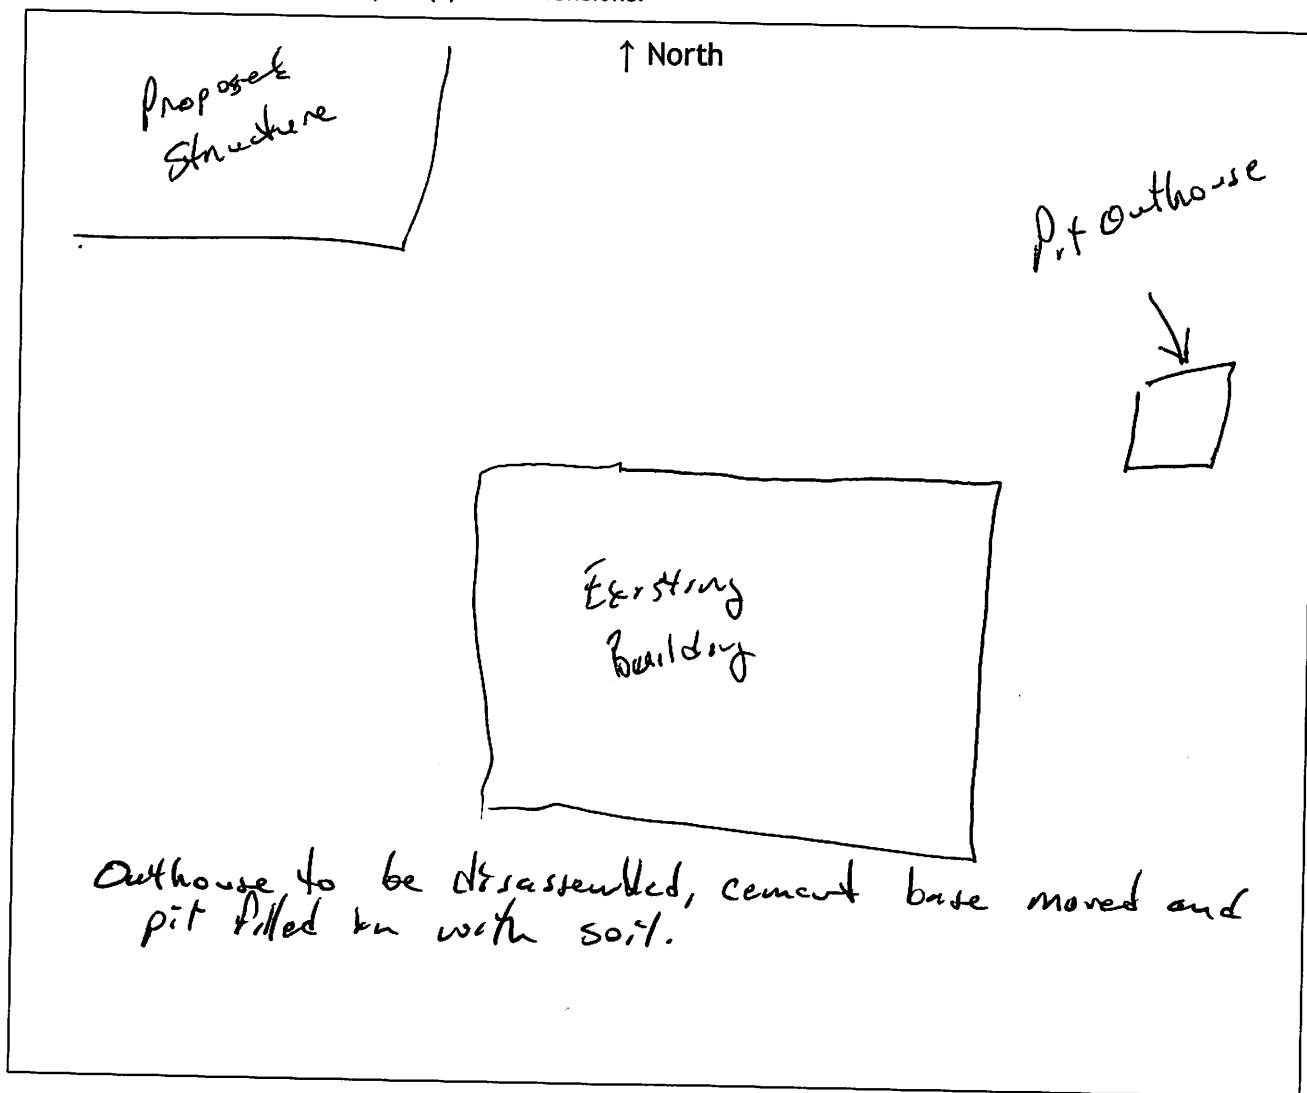 ↑ North
Proposed
Structure
Pit Outhouse
Existing
Building
Outhouse to be disassembled, cement base moved and
pit filled in with soil.